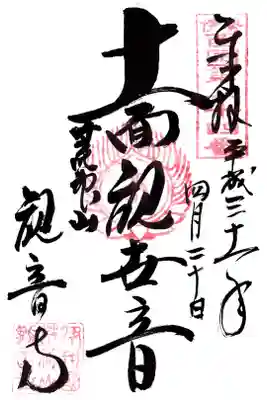 奉拝
平成三十一年
四月二十日
十一面観世音
観音寺